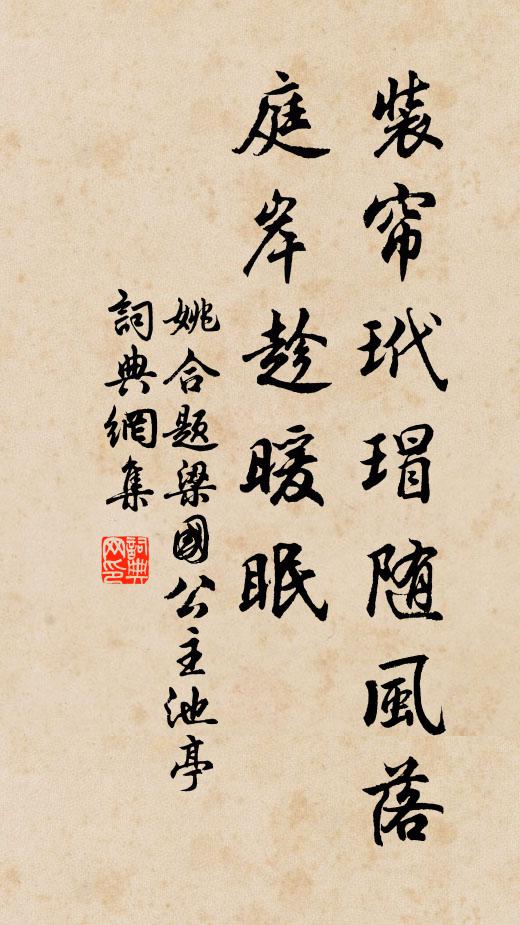 裝帘玳瑁随風落
庭岸趁暖眠
姚合题梁國公主池亭
詞典網集
詞典网印